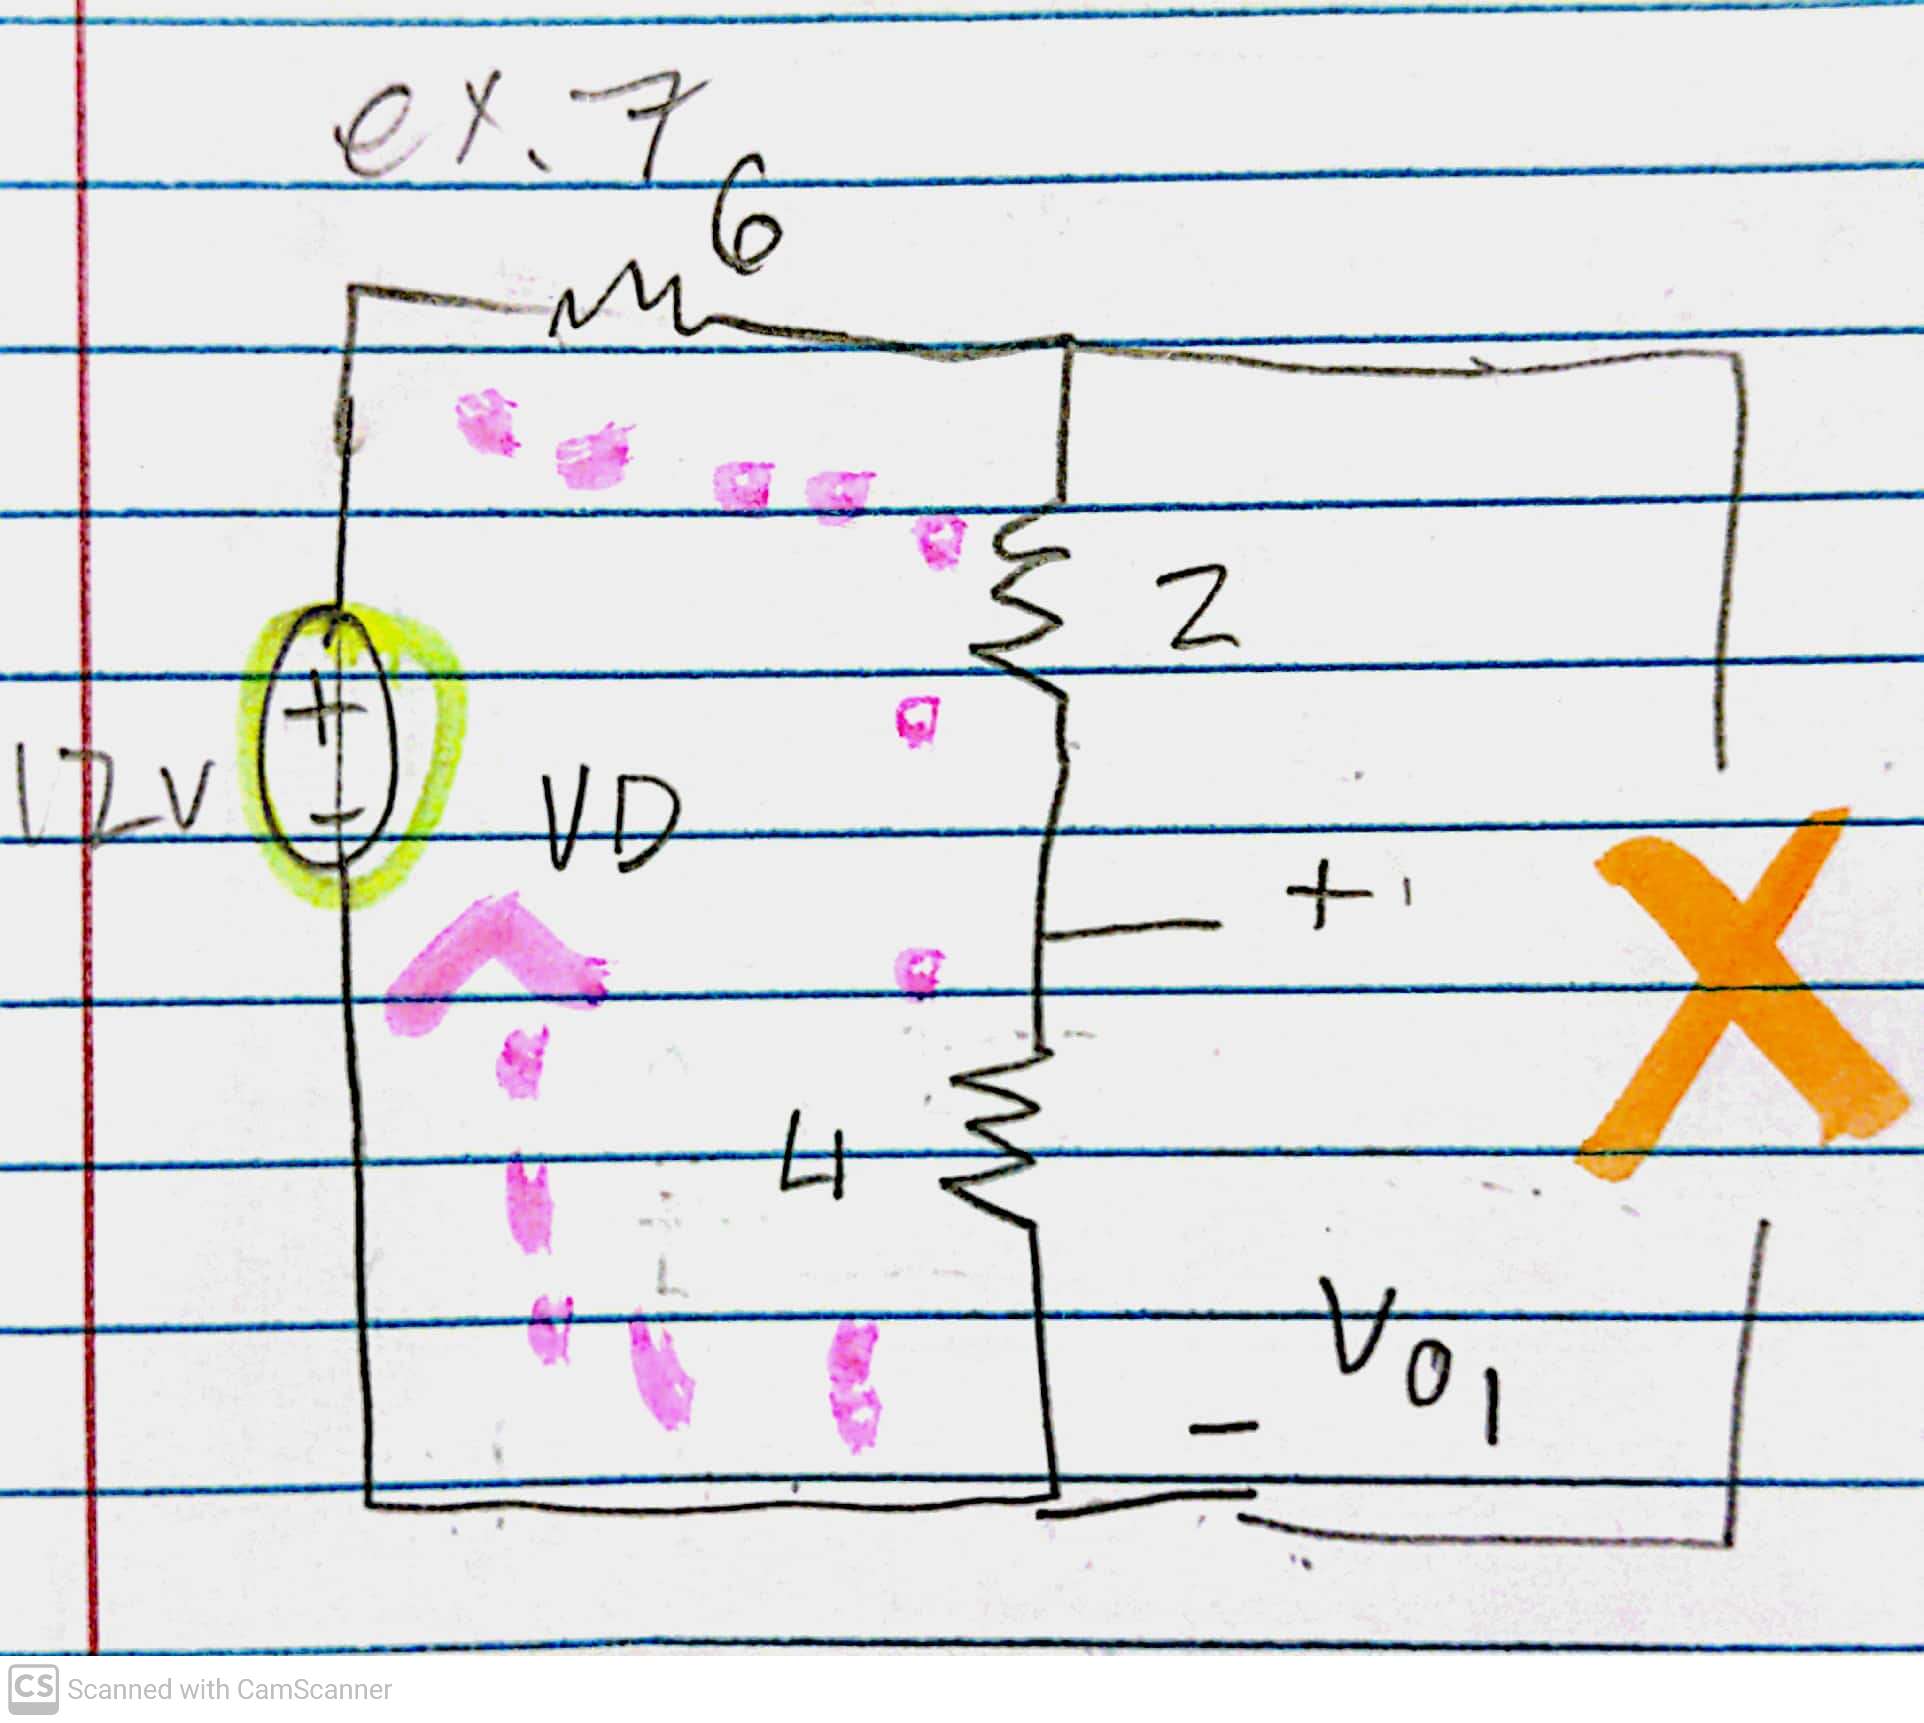 ex. 7
6
2
+
12V
VD
+
-
4
Vo1
-
CS Scanned with CamScanner